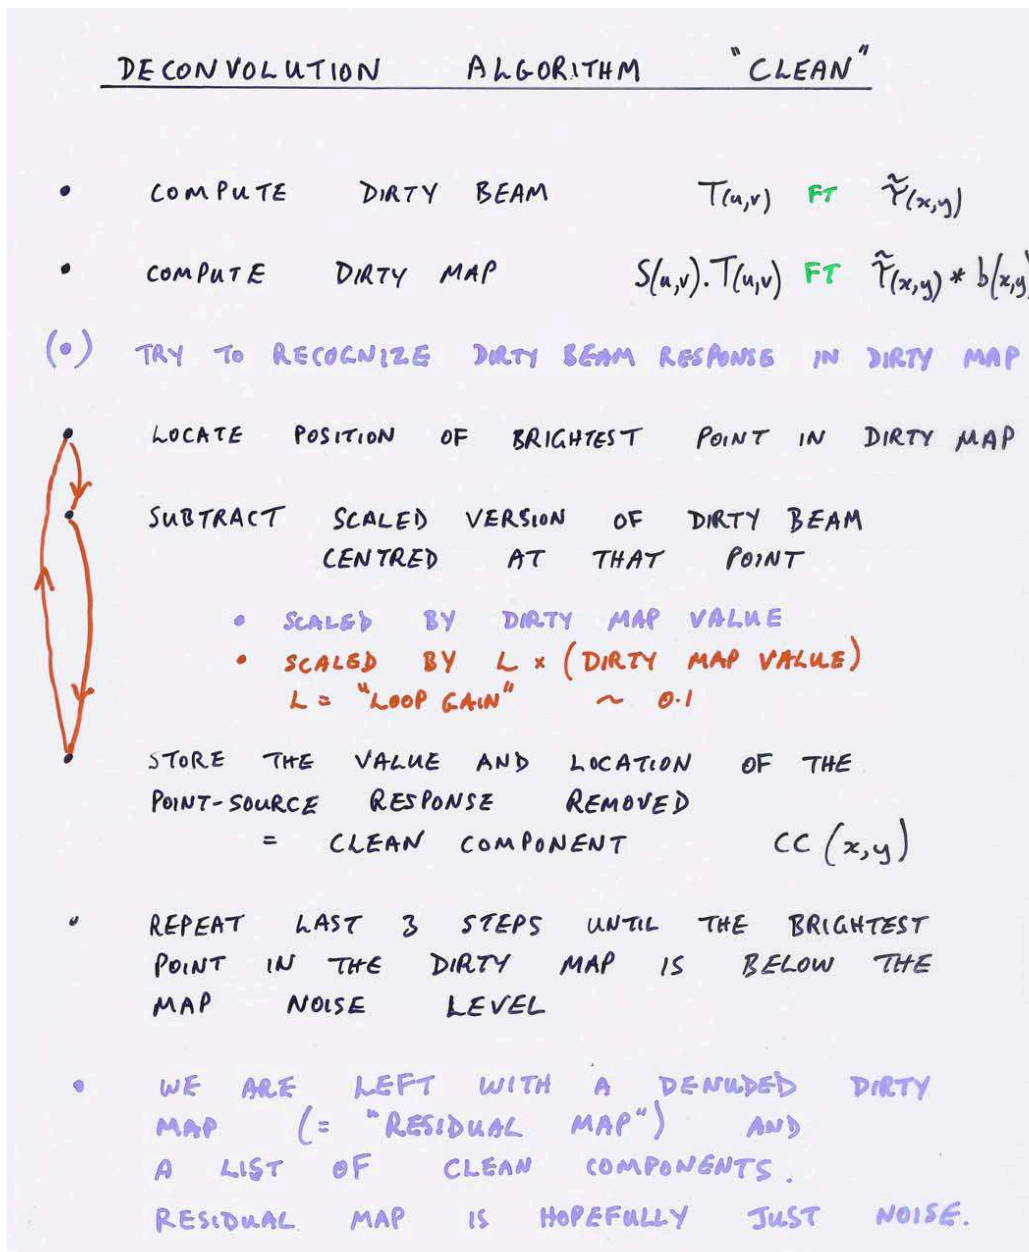 DECONVOLUTION ALGORITHM "CLEAN"
• COMPUTE DIRTY BEAM T(u,v) FT T̃(x,y)
• COMPUTE DIRTY MAP S(u,v).T(u,v) FT T̃(x,y) * b(x,y)
(•) TRY TO RECOGNIZE DIRTY BEAM RESPONSE IN DIRTY MAP
• LOCATE POSITION OF BRIGHTEST POINT IN DIRTY MAP
• SUBTRACT SCALED VERSION OF DIRTY BEAM
CENTRED AT THAT POINT
• SCALED BY DIRTY MAP VALUE
• SCALED BY L × (DIRTY MAP VALUE)
L = "LOOP GAIN" ~ 0.1
• STORE THE VALUE AND LOCATION OF THE
POINT-SOURCE RESPONSE REMOVED
= CLEAN COMPONENT CC (x,y)
• REPEAT LAST 3 STEPS UNTIL THE BRIGHTEST
POINT IN THE DIRTY MAP IS BELOW THE
MAP NOISE LEVEL
• WE ARE LEFT WITH A DENUDED DIRTY
MAP (= "RESIDUAL MAP") AND
A LIST OF CLEAN COMPONENTS.
RESIDUAL MAP IS HOPEFULLY JUST NOISE.